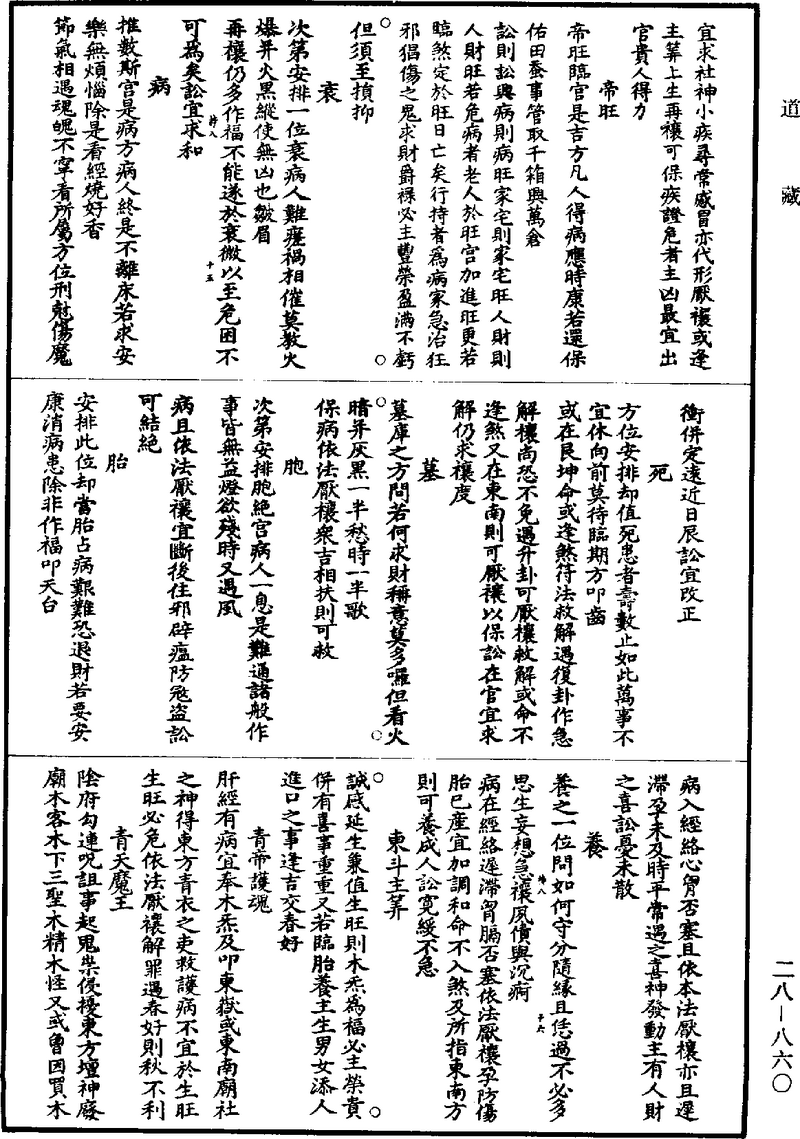 道藏
宜求社神小疾尋常感冒亦代形厭禳或逢
主筭上生再禳可保疾證危者主凶最宜出
官貴人得力
帝旺
帝旺臨官是吉方凡人得病應時康若還保
佑田蚕事管取千箱興萬倉
訟則訟興病則病旺家宅則家宅旺人財則
人財旺若危病者老人於旺宫加進旺更若
臨煞定於旺日亡矣行持者為病家急治狂
邪猖傷之鬼求財爵祿必主豐榮盈滿不虧
但須至損抑
衰
次第安排一位衰病人難瘥禍相催莫教火
爆并火黑縱使無凶也皺眉
再禳仍多作福不能遂於衰微以至危困不
可為矣訟宜求和
病
推數斯宫是病方病人終是不離床若求安
樂無煩惱除是看經燒好香
節氣相遇魂魄不寧看所屬方位刑尅傷魔
衝併定遠近日辰訟宜改正
死
方位安排却值死患者壽數止如此萬事不
宜休向前莫待臨期方叩齒
或在艮坤命或逢煞符法救解遇復卦作急
解禳尚恐不免遇升卦可厭禳救解或命不
逢煞又在東南則可厭禳以保訟在官宜求
解仍求禳度
墓
墓庫之方問若何求財稱意莫多囉但看火
暗并灰黑一半愁時一半歌
保病依法厭禳衆吉相扶則可救
胞
次第安排胞絕宫病人一息是難通諸般作
事皆無益燈欲殘時又遇風
病且依法厭禳宜斷後住邪辟瘟防寇盗訟
可結絕
胎
安排此位却當胎占病艱難恐退財若要安
康消病患除非作福叩天台
病入經絡心胷否塞且依本法厭禳亦且遲
滯孕未及時平常遇之喜神發動主有人財
之喜訟憂未散
養
養之一位問如何守分隨緣且恁過不必多
思生妄想急禳夙債與沉痾
病在經絡遲滯胷膈否塞依法厭禳孕防傷
胎已産宜加調和命不入煞及所指東南方
則可養成人訟寛緩不急
東斗主筭
誠感延生兼值生旺則木炁為福必主榮貴
併有喜事重重又若臨胎養主生男女添人
進口之事逢吉交春好
青帝護魂
肝經有病宜奉木炁及叩東嶽或東南廟社
之神得東方青衣之吏救護病不宜於生旺
生旺必危依法厭禳解罪遇春好則秋不利
青天魔王
陰府勾連呪詛事起鬼祟侵擾東方壇神廢
廟木客木下三聖木精木怪又或曾因買木
二八—八六〇